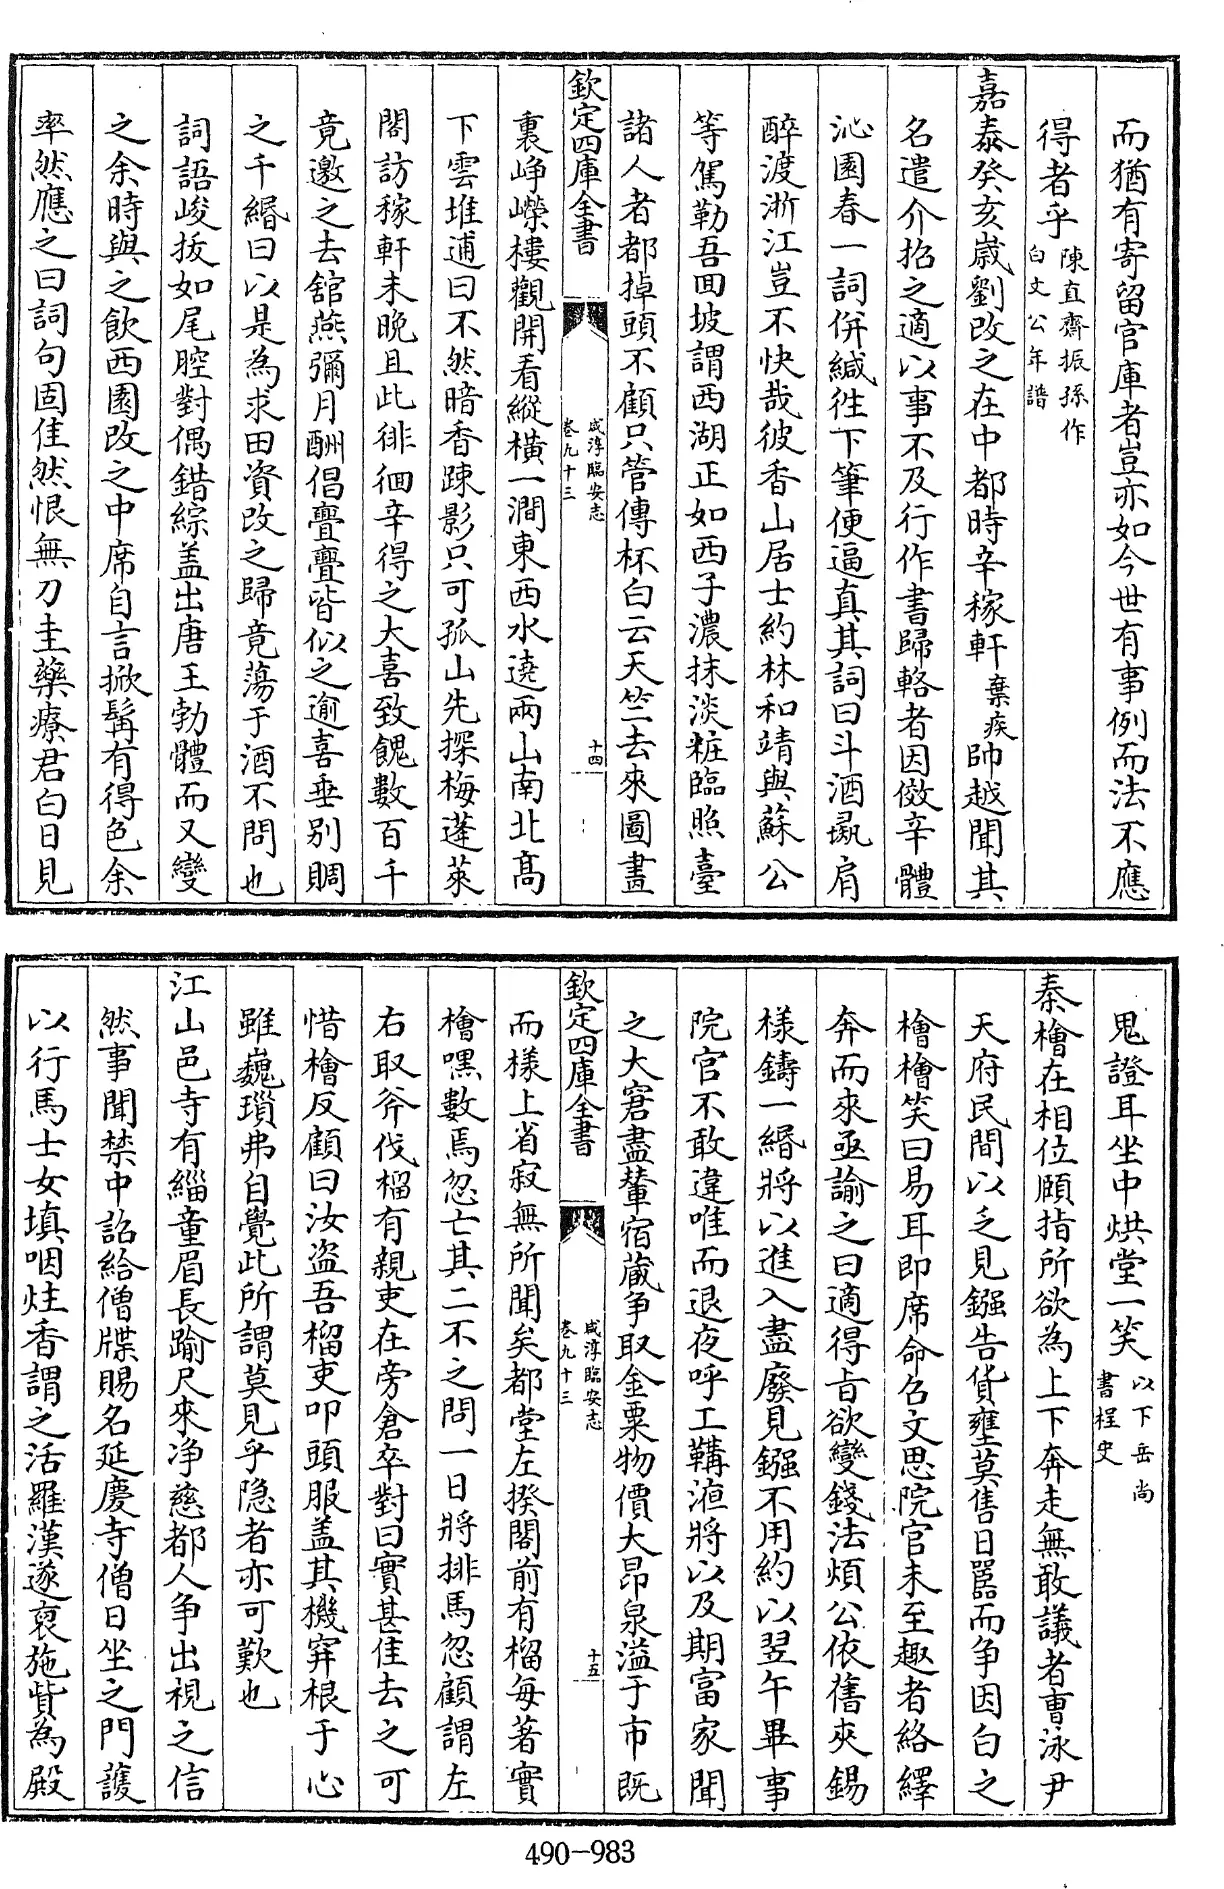 而猶有寄留官庫者豈亦如今世有事例而法不應
得者乎陳直齋振孫作白文公年譜
嘉泰癸亥歲劉改之在中都時辛稼軒棄疾帥越聞其
名遣介招之適以事不及行作書歸輅者因倣辛體
沁園春一詞併緘徃下筆便逼真其詞曰斗酒彘肩
醉渡浙江豈不快哉彼香山居士約林和靖與蘇公
等駕勒吾回坡謂西湖正如西子濃抹淡粧臨照臺
諸人者都掉頭不顧只管傳杯白云天竺去來圖畫
欽定四庫全書
咸淳臨安志
卷九十三
十四
裏崢嶸樓觀開看縱橫一澗東西水遶兩山南北高
下雲堆逋曰不然暗香踈影只可孤山先探梅蓬萊
閣訪稼軒未晩且此徘徊辛得之大喜致餽數百千
竟邀之去舘燕彌月酬倡亹亹皆似之逾喜垂别賙
之千緡曰以是為求田資改之歸竟蕩于酒不問也
詞語峻拔如尾腔對偶錯綜盖出唐王勃體而又變
之余時與之飲西園改之中席自言掀髯有得色余
率然應之曰詞句固佳然恨無刀圭藥療君白日見
鬼證耳坐中烘堂一笑以下岳尚書桯史
秦檜在相位頤指所欲為上下奔走無敢議者曹泳尹
天府民間以乏見鏹告貨壅莫售日嚚而争因白之
檜檜笑曰易耳即席命召文思院官未至趣者絡繹
奔而來亟諭之曰適得旨欲變錢法煩公依舊夾錫
様鑄一緡將以進入盡廢見鏹不用約以翌午畢事
院官不敢違唯而退夜呼工鞲液將以及期富家聞
之大窘盡輦宿蔵争取金粟物價大昂泉溢于市既
欽定四庫全書
咸淳臨安志
卷九十三
十五
而様上省寂無所聞矣都堂左揆閣前有榴每著實
檜嘿數焉忽亡其二不之問一日將排馬忽顧謂左
右取斧伐榴有親吏在旁倉卒對曰實甚佳去之可
惜檜反顧曰汝盗吾榴吏叩頭服盖其機穽根于心
雖巍瑣弗自覺此所謂莫見乎隐者亦可歎也
江山邑寺有緇童眉長踰尺來浄慈都人争出視之信
然事聞禁中詔給僧牒賜名延慶寺僧日坐之門䕶
以行馬士女填咽炷香謂之活羅漢遂裒施貲為殿
490-983